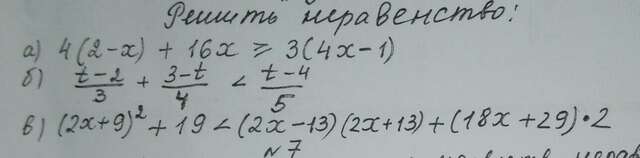 Решить неравенство:
а) 4(2-x) + 16x ≥ 3(4x-1)
б) \frac{t-2}{3} + \frac{3-t}{4} < \frac{t-4}{5}
в) (2x+9)² + 19 < (2x-13)(2x+13) + (18x+29)•2
№7